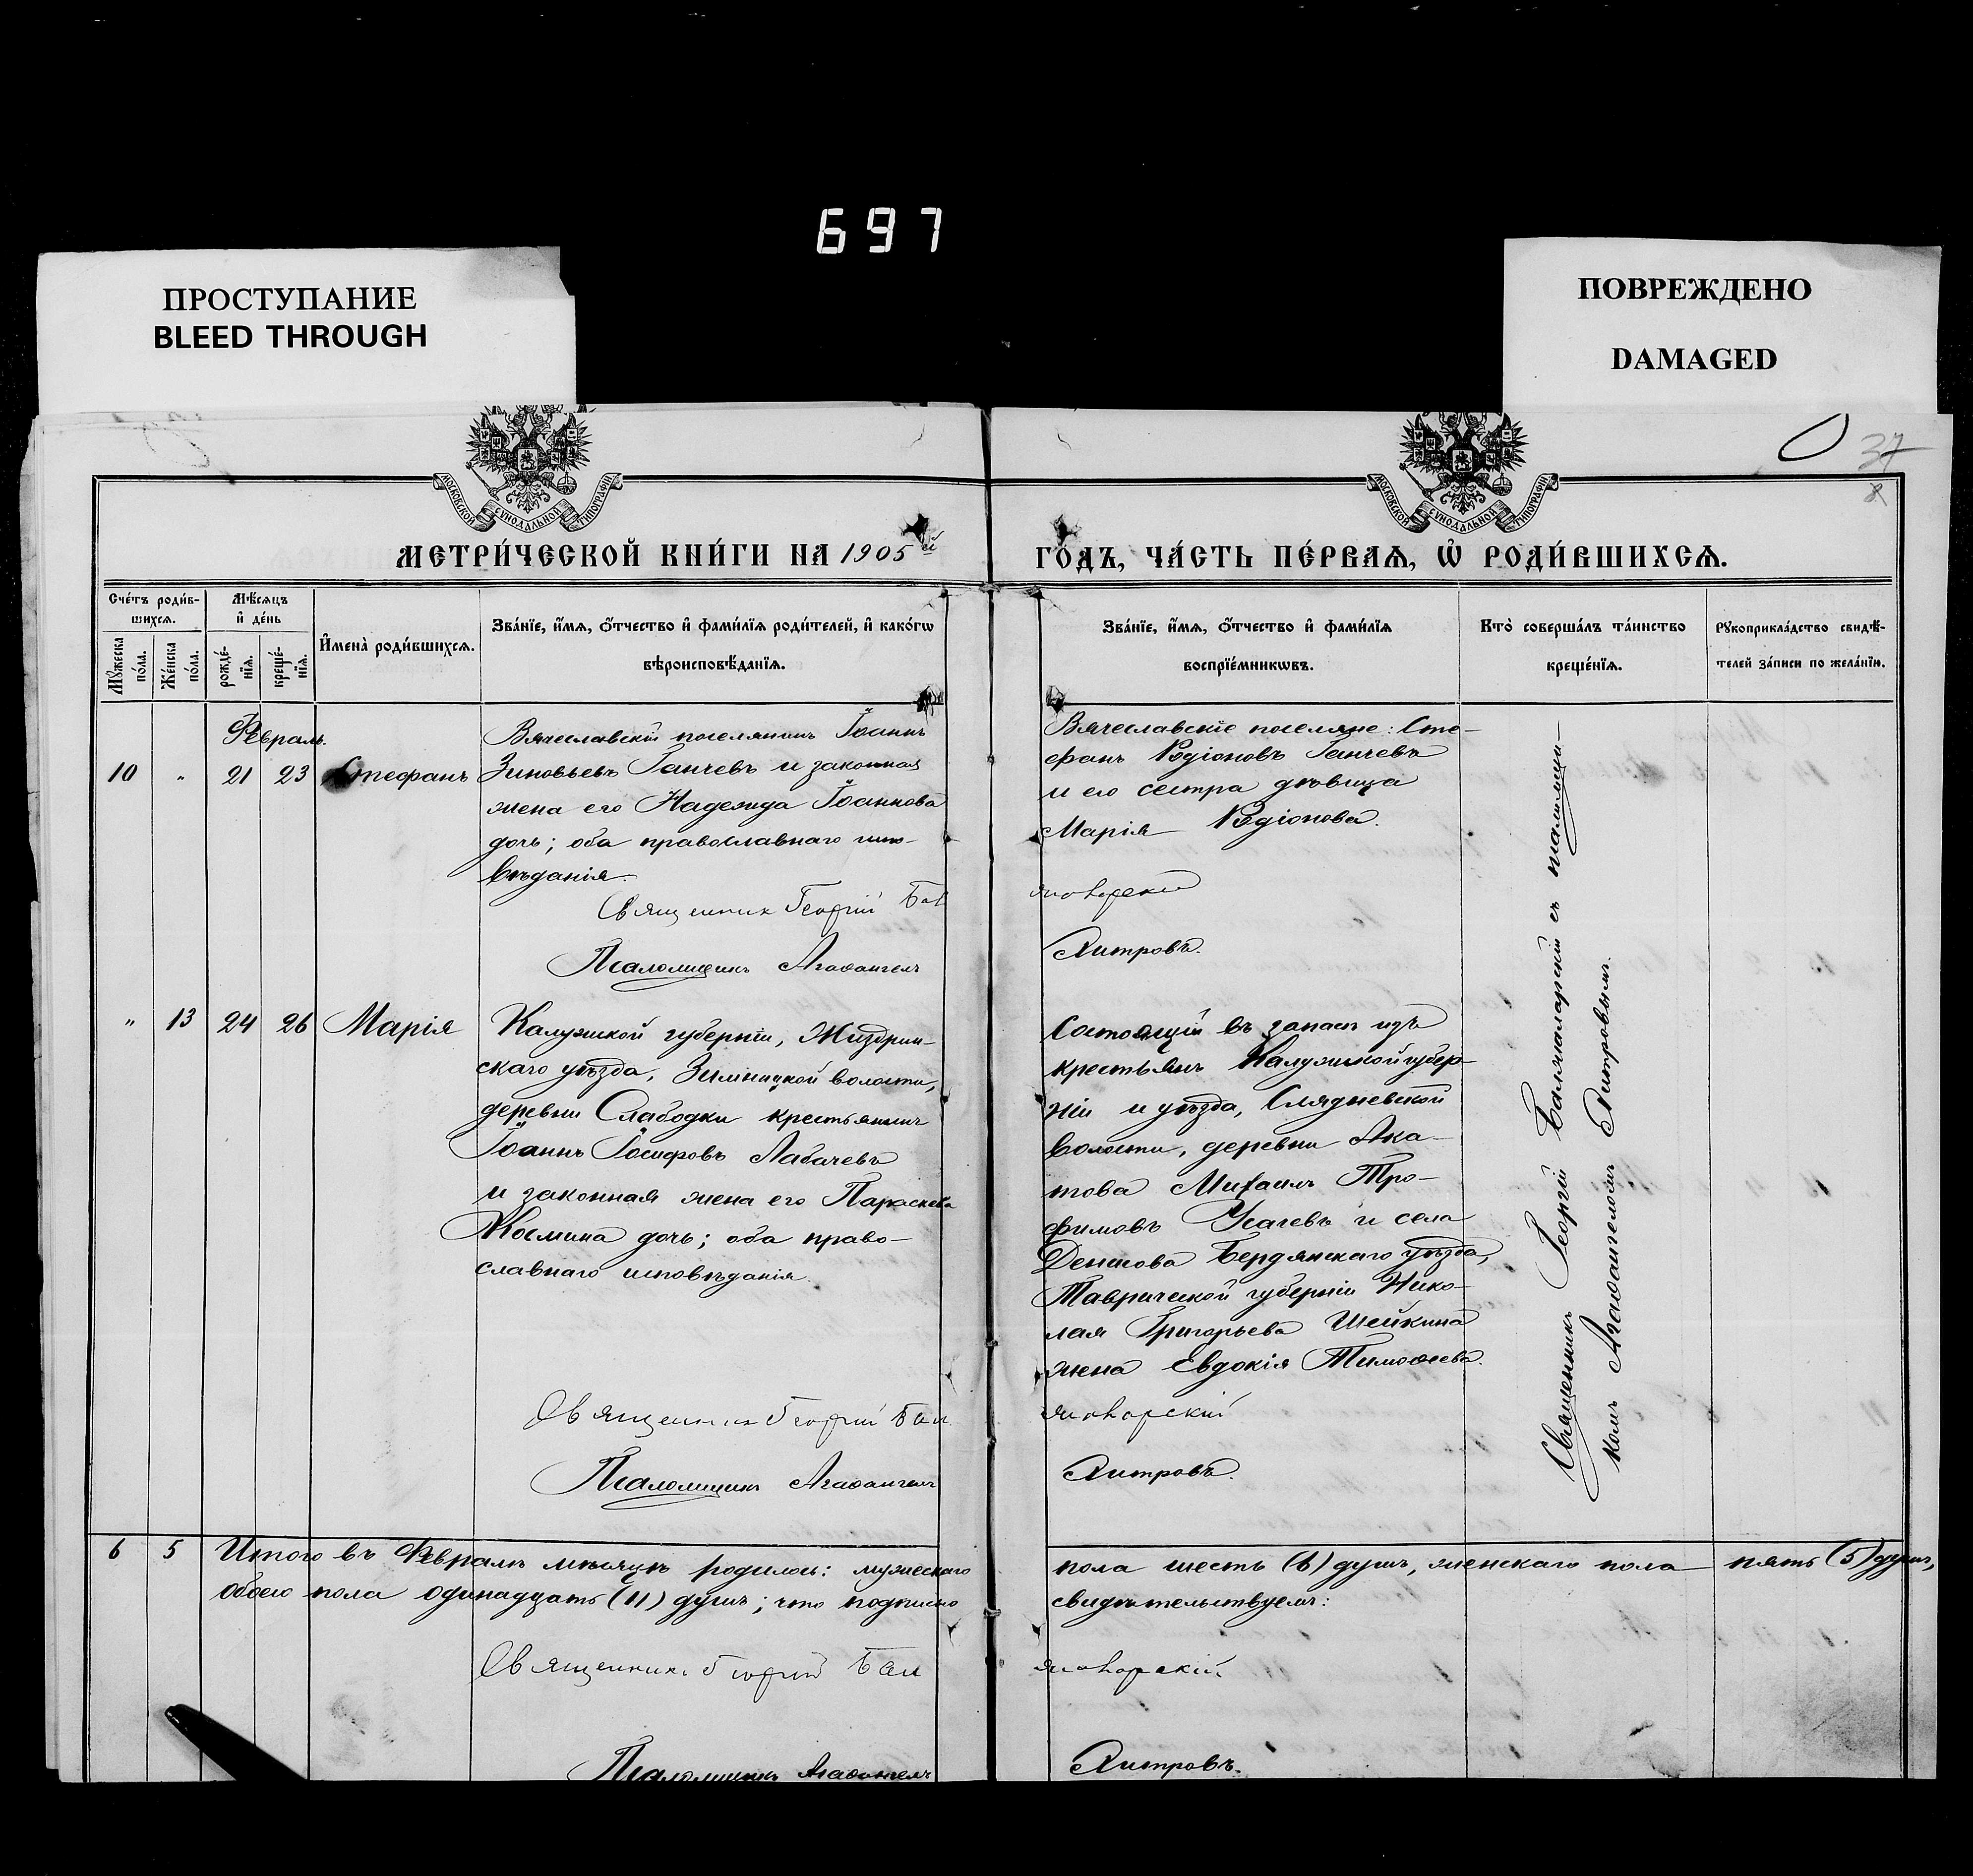 697
ПРОСТУПАНИЕ
BLEED THROUGH
ПОВРЕЖДЕНО
DAMAGED
37
МОСКОВСКОЙ СѴНОДАЛЬНОЙ ТИПОГРАФІИ
МОСКОВСКОЙ СѴНОДАЛЬНОЙ ТИПОГРАФІИ
МЕТРИ́ЧЕСКОЙ КНИ́ГИ НА 1905й
ГО́ДЪ, ЧА́СТЬ ПЕ́РВАѦ, Ѡ҆ РОДИ́ВШИХСѦ.
Сче́тъ роди́в-
шихсѧ.
Мꙋ́жеска
по́ла.
Же́нска
по́ла.
Мѣ́сѧцъ
и҆ де́нь
рожде́-
нїѧ.
креще́-
нїѧ.
И҆мена̀ роди́вшихсѧ.
Зва́нїе, и҆́мѧ, ѻ҆́тчество и҆ фами́лїѧ роди́телей, и҆ како́гѡ
вѣроисповѣ́данїѧ.
Зва́нїе, и҆́мѧ, ѻ҆́тчество и҆ фами́лїѧ
воспрїе́мникѡвъ.
Кто̀ соверша́лъ та́инство
креще́нїѧ.
Рꙋкоприкла́дство свидѣ́-
телей за́писи по жела́нїю.
Февраль.
10 " 21 23 Стефанъ
Вячеславскій поселянинъ Іоаннъ
Зиновьевъ Ганчевъ и законная
жена его Надежда Іоаннова
дочь; оба православнаго испо-
вѣданія.
Священник Георгій Бал
Псаломщикъ Агаѳангелъ
Вячеславскіе поселяне: Сте-
фанъ Родіоновъ Ганчевъ
и его сестра дѣвица
Марія Родіонова.
яноворскій
Хитровъ.
" 13 24 26 Марія
Калужской губерніи, Жиздрин-
скаго уѣзда, Зилиницкой волости,
деревни Слабодки крестьянинъ
Іоаннъ Іосифовъ Лабачевъ
и законная жена его Параскева
Космина дочь; оба право-
славнаго исповѣданія.
Священник Георгій Бал
Псаломщикъ Агаѳангелъ
Состоящій въ запасѣ изъ
крестьянъ Калужской губер-
ніи и уѣзда, Слядневской
волости, деревни Ака-
това Михаилъ Тро-
фимовъ Усачевъ и села
Денисова Бердянскаго уѣзда,
Таврической губерніи Нико-
лая Григорьева Шейкина
жена Евдокія Тимоѳеева.
яноворскій
Хитровъ.
Священникъ Георгій съ псаломщи-
комъ Агаѳангеломъ Хитровымъ.
6 5 Итого въ Февралѣ мѣсяцѣ родилось: мужескаго пола шесть (6) душъ, женскаго пола пять (5) душъ,
обоего пола одинадцать (11) душъ; что подписью свидѣтельствуемъ:
Священникъ Георгій Бал
яноворскій
Псаломщикъ Агаѳангелъ
Хитровъ.